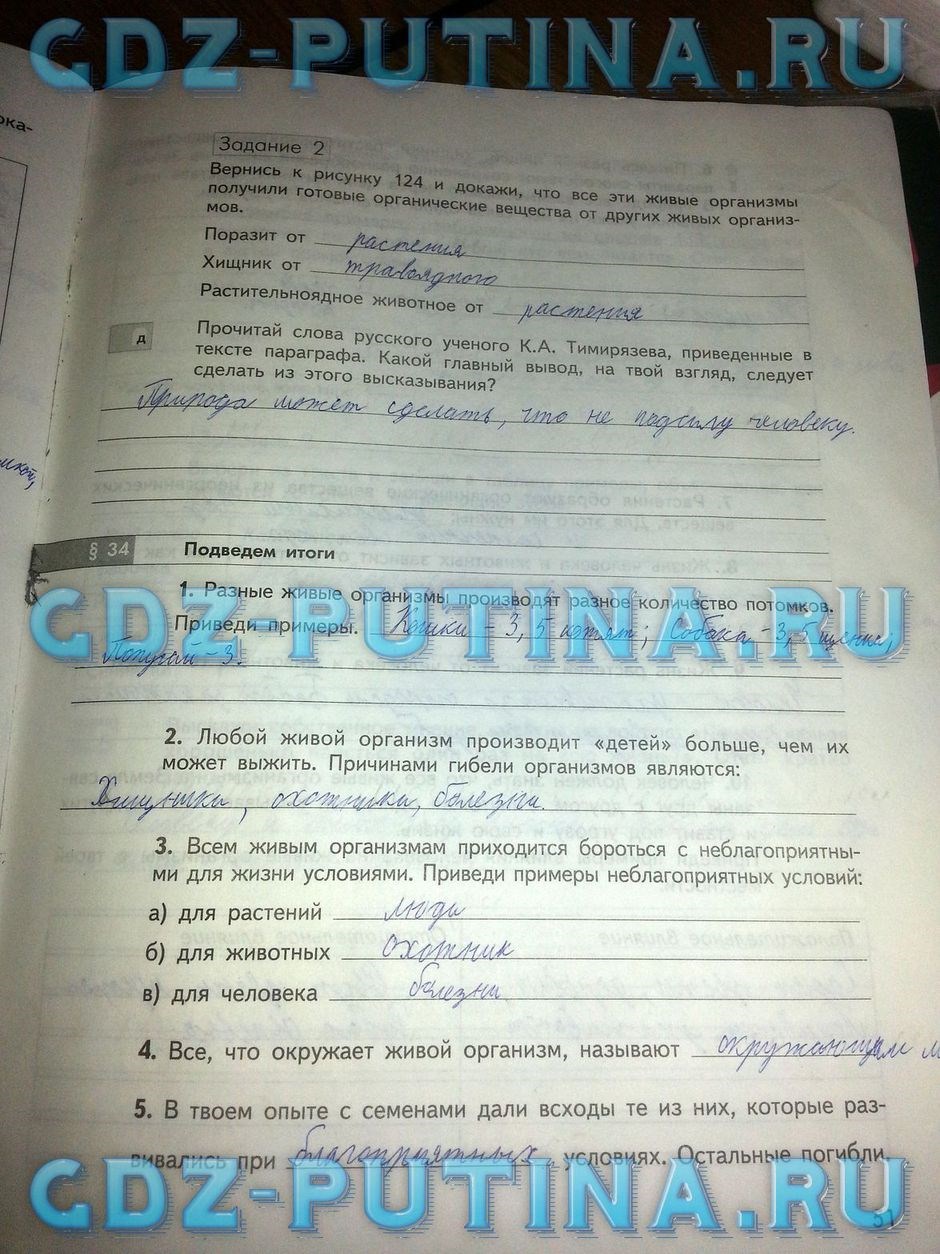 GDZ-PUTINA.RU
ока-
Задание 2
Вернись к рисунку 124 и докажи, что все эти живые организмы
получили готовые органические вещества от других живых организ-
мов.
Поразит от растения
Хищник от травоядного
Растительноядное животное от растения
д
Прочитай слова русского ученого К.А. Тимирязева, приведенные в
тексте параграфа. Какой главный вывод, на твой взгляд, следует
сделать из этого высказывания?
Природа может сделать, что не подсилу человеку.
§ 34 Подведем итоги
1. Разные живые организмы производят разное количество потомков.
GDZ-PUTINA.RU
Приведи примеры. Кошки - 3, 5 котят; Собака - 3, 5 щенка;
Попугай - 3.
2. Любой живой организм производит «детей» больше, чем их
может выжить. Причинами гибели организмов являются:
Хищники, охотники, болезни.
3. Всем живым организмам приходится бороться с неблагоприятны-
ми для жизни условиями. Приведи примеры неблагоприятных условий:
а) для растений люди
б) для животных охотник
в) для человека болезни
4. Все, что окружает живой организм, называют окружающим м
5. В твоем опыте с семенами дали всходы те из них, которые раз-
вивались при благоприятных условиях. Остальные погибли.
GDZ-PUTINA.RU
51